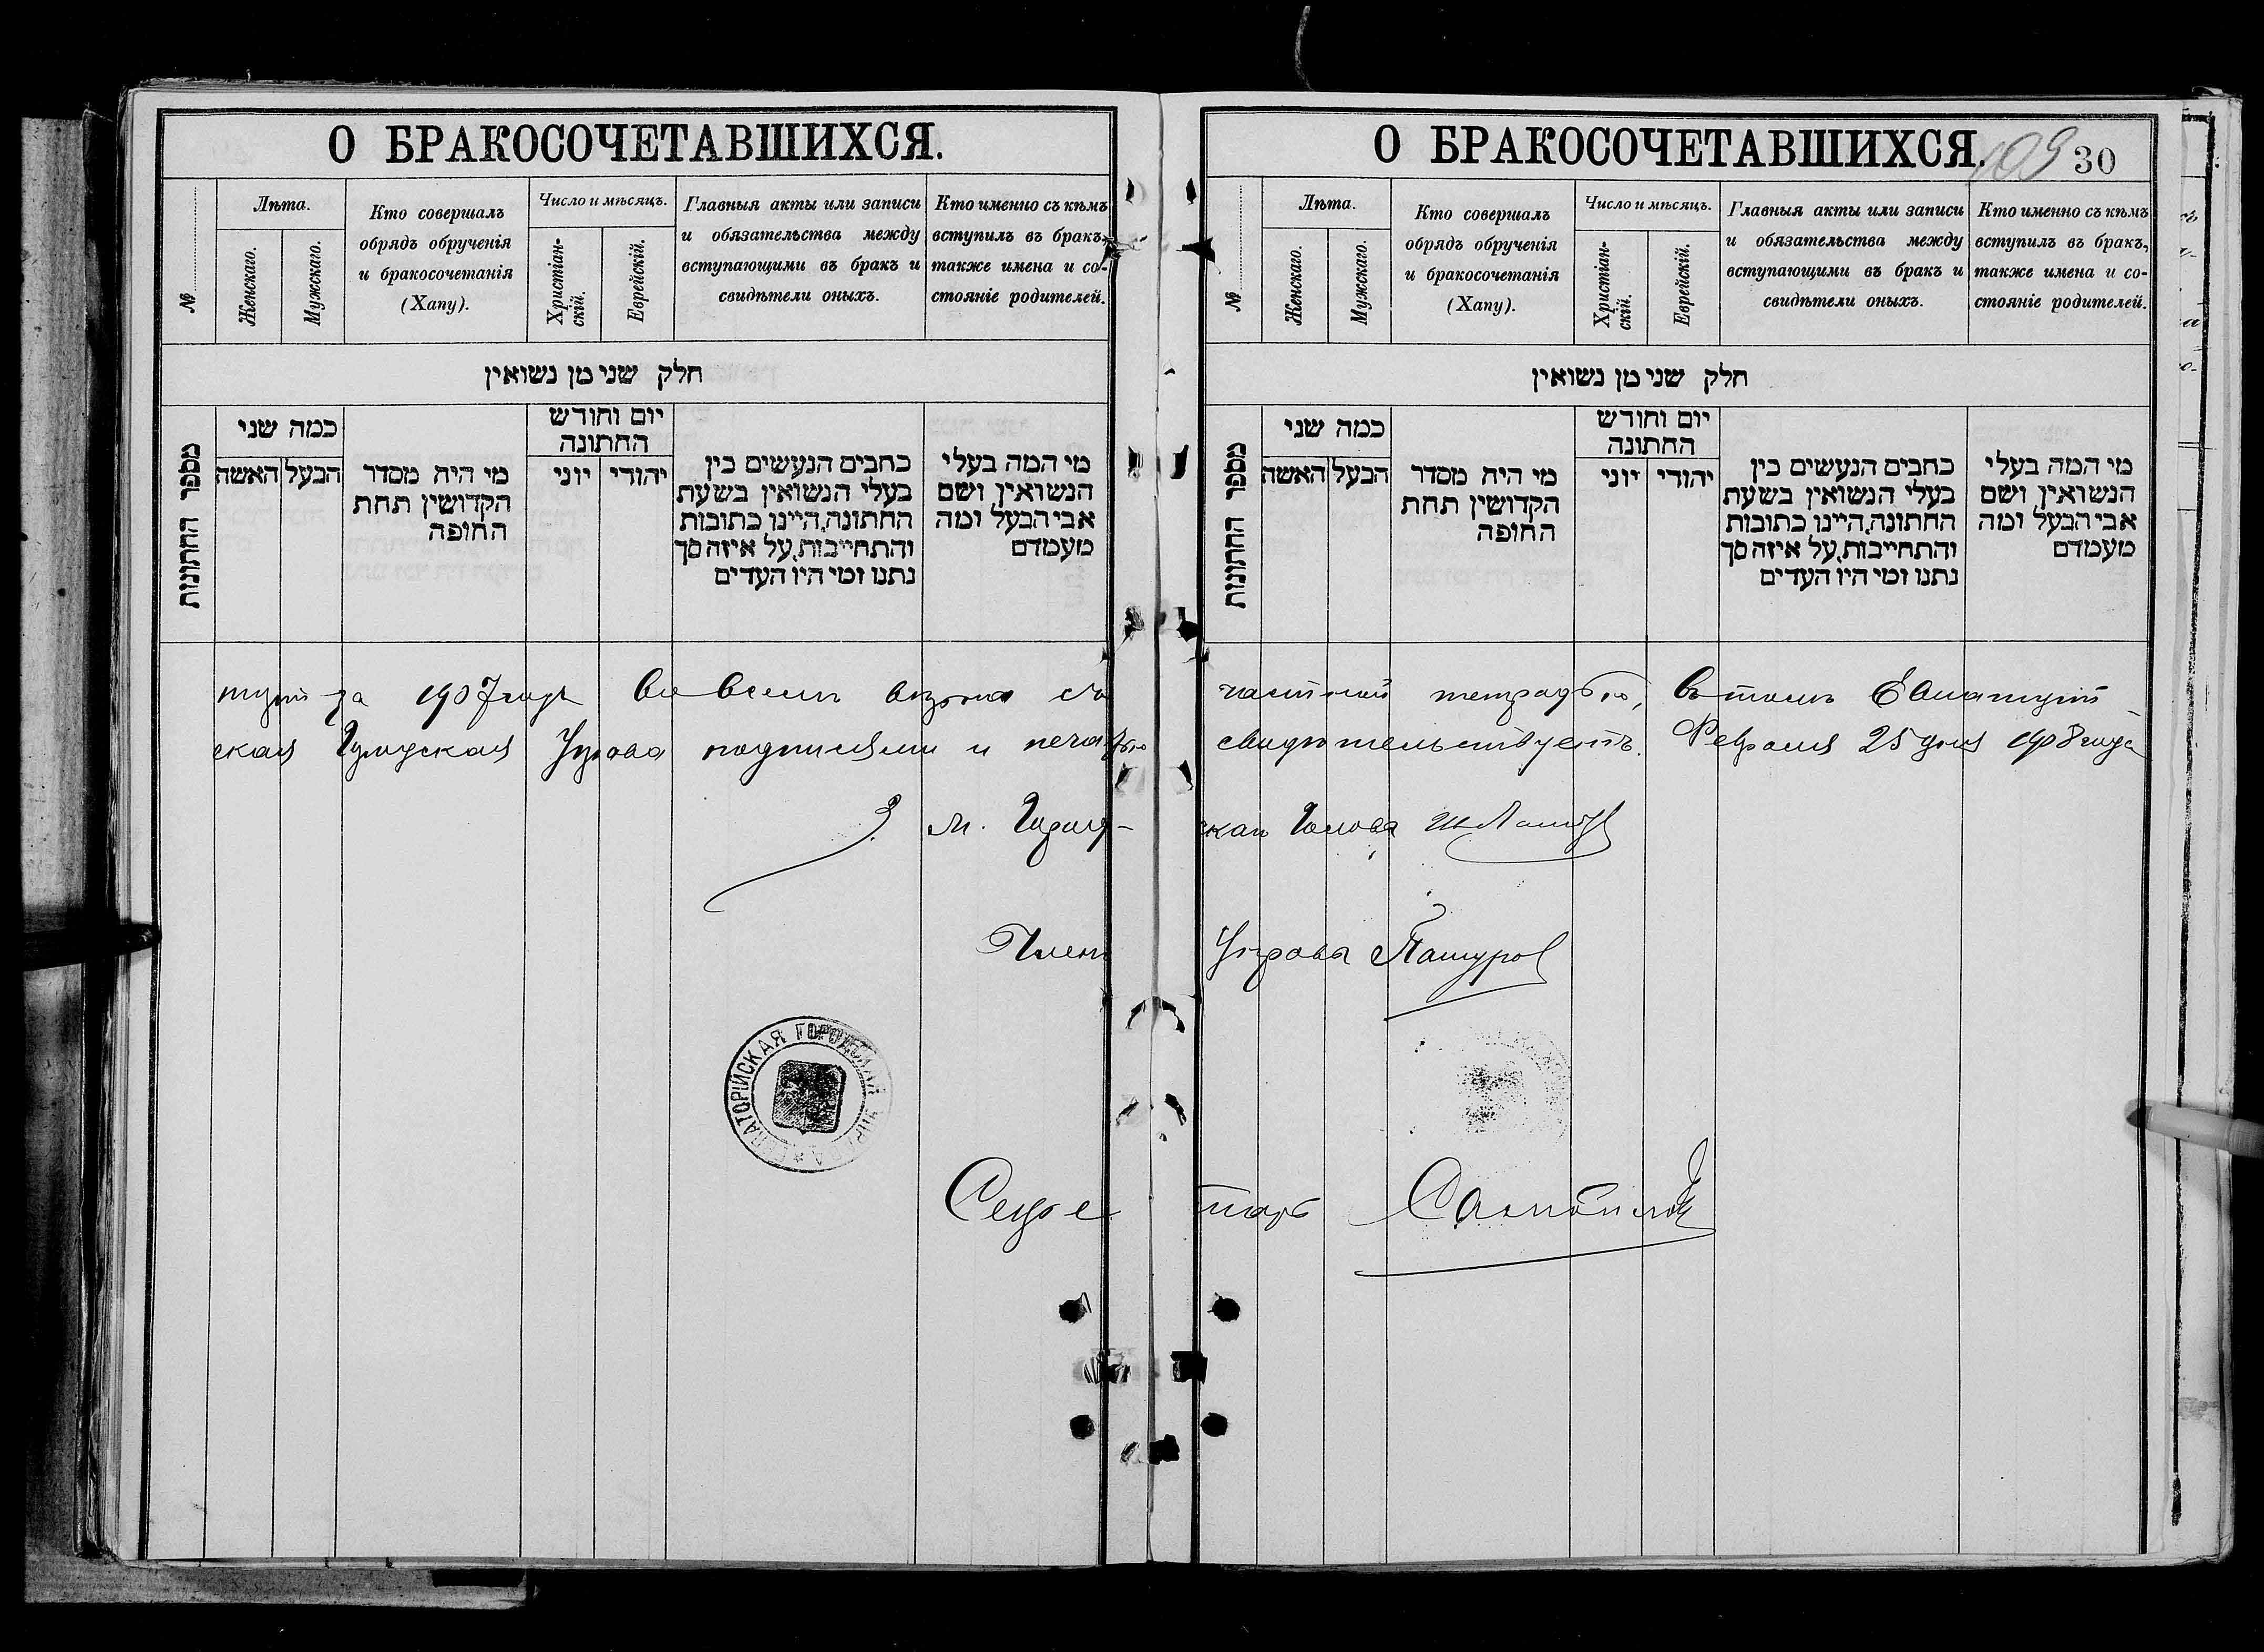 О БРАКОСОЧЕТАВШИХСЯ.
№
Лѣта.
Женскаго.
Мужскаго.
Кто совершалъ
обрядъ обрученія
и бракосочетанія
(Хапу).
Число и мѣсяцъ.
Христіан-
скій.
Еврейскій.
Главныя акты или записи
и обязательства между
вступающими въ бракъ и
свидѣтели оныхъ.
Кто именно съ кѣмъ
вступилъ въ бракъ,
также имена и со-
стояніе родителей.
חלק שני מן נשואין
מספר החתונות
כמה שני
הבעל
האשה
מי היה מסדר
הקדושין תחת
החופה
יום וחודש
החתונה
יהודי
יוני
כתבים הנעשים בין
בעלי הנשואין בשעת
החתונה, היינו כתובות
והתחייבות, על איזה סך
נתנו ומי היו העדים
מי המה בעלי
הנשואין ושם
אבי הבעל ומה
מעמדם
за 1907 годъ во всемъ съ
ская Городская Управа подписями и печатью
М. Город-
Член
ЕВПАТОРІЙСКАЯ ГОРОДСКАЯ УПРАВА
Секре
О БРАКОСОЧЕТАВШИХСЯ.
109 30
№
Лѣта.
Женскаго.
Мужскаго.
Кто совершалъ
обрядъ обрученія
и бракосочетанія
(Хапу).
Число и мѣсяцъ.
Христіан-
скій.
Еврейскій.
Главныя акты или записи
и обязательства между
вступающими въ бракъ и
свидѣтели оныхъ.
Кто именно съ кѣмъ
вступилъ въ бракъ,
также имена и со-
стояніе родителей.
חלק שני מן נשואין
מספר החתונות
כמה שני
הבעל
האשה
מי היה מסדר
הקדושין תחת
החופה
יום וחודש
החתונה
יהודי
יוני
כתבים הנעשים בין
בעלי הנשואין בשעת
החתונה, היינו כתובות
והתחייבות, על איזה סך
נתנו ומי היו העדים
מי המה בעלי
הנשואין ושם
אבי הבעל ומה
מעמדם
частной тетрадью, въ томъ
свидѣтельствуетъ. Февраля 25 дня 1908 года
ской Голова
Управы
тарь